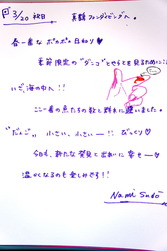 3/20 祝日 真鶴ファンダイビングへ。
春一番な ポカポカ日和り♡
季節限定の "ダンゴ"ちゃんを見るために
いざ海の中へ!!
ここ一番の魚たちの数と群れに 遭いました。
"だんご" 小さい、小さいー!? びっくり♡
今日も、新たな発見と出会いに 幸せー♡
温かくなるのも楽しみです!!
Nami Sato